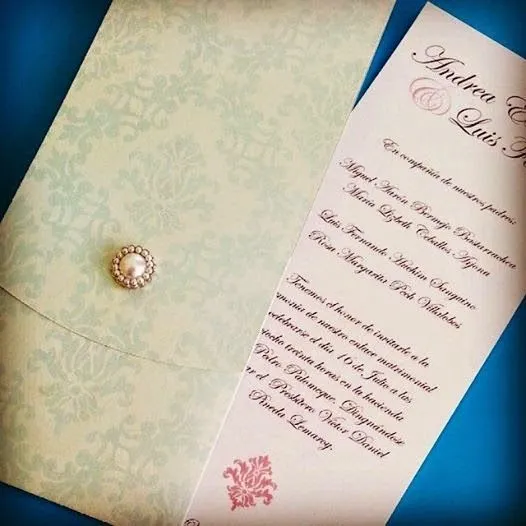 Andrea E
& Luis
En compañía de nuestros padres:
Miguel Aarón Bermejo
María Lizbeth Ceballos Arjona
Luis Fernando
Rosa Margarita Poch Villalobos
Tenemos el honor de invitarle a la
emonia de nuestro enlace matrimonial
celebrarse el día 16 de Julio a las
ocho treinta horas en la hacienda
Pedro Palomeque. Dignándose
ar el Presbítero Víctor Daniel
Pineda